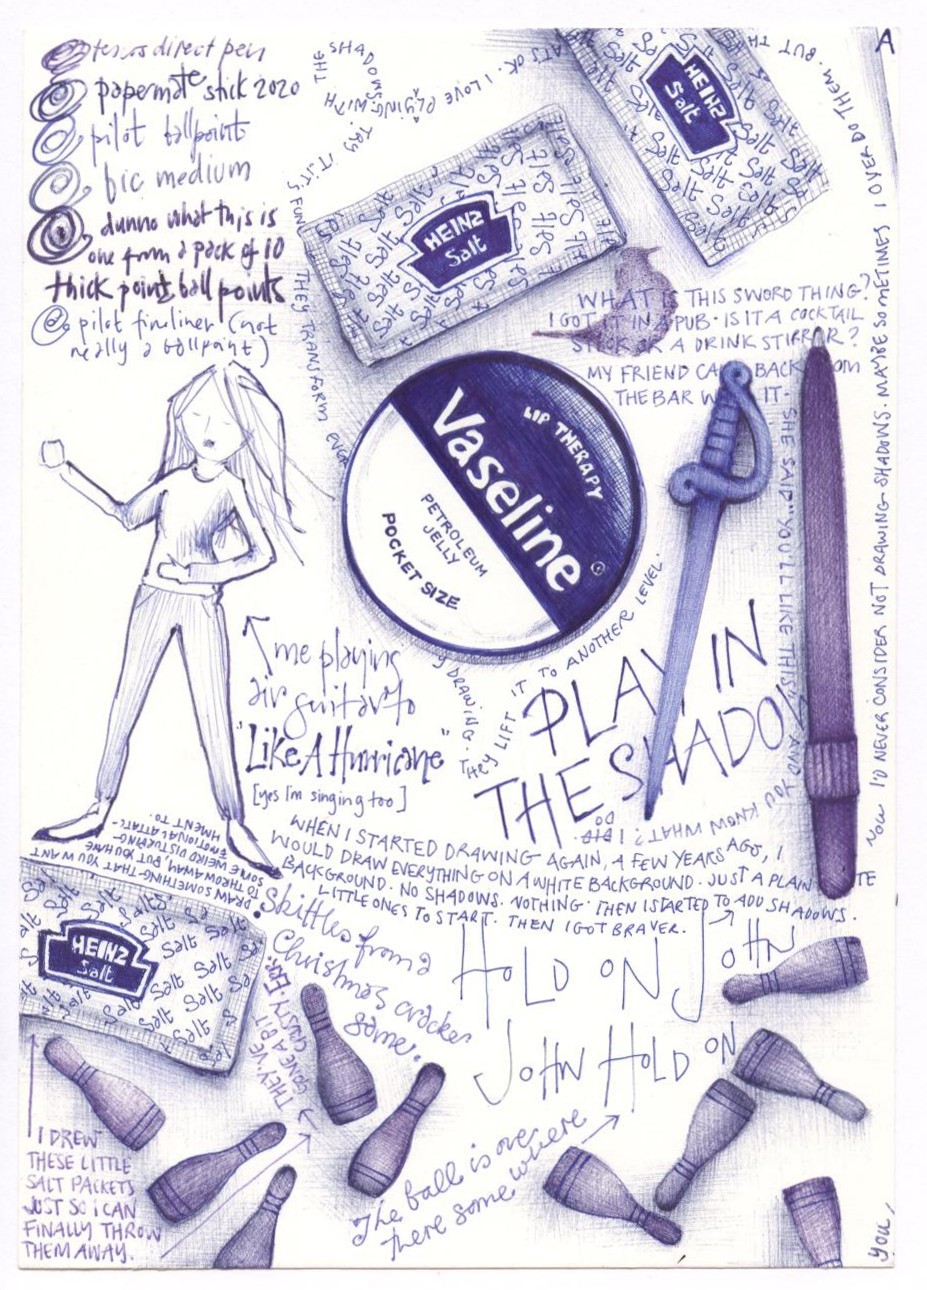 tesco direct pen
papermate stick 2020
pilot ballpoint
bic medium
dunno what this is
one from a pack of 10
thick point ball points
pilot fineliner (not
really a ballpoint)
THE SHADOWS
PLAYING WITH
IT'S FUN.
THEY TRANSFORM EVERY
DRAWING. THEY LIFT IT TO ANOTHER LEVEL.
THATS OK. I LOVE
BUT TH
HEINZ
Salt
HEINZ
Salt
WHAT IS THIS SWORD THING?
I GOT IT IN A PUB. IS IT A COCKTAIL
STICK OR A DRINK STIRRER?
MY FRIEND CA BACK OM
THE BAR W IT.
SHE SAID "YOU'LL LIKE THIS" AND YOU
KNOW WHAT? I DID DO
LIP THERAPY
Vaseline
PETROLEUM
JELLY
POCKET SIZE
PLAY IN
THE SHADOW
NOW I'D NEVER CONSIDER NOT DRAWING SHADOWS. MAYBE SOMETIMES I OVER DO THEM.
me playing
air guitar to
"Like A Hurricane"
[yes I'm singing too]
WHEN I STARTED DRAWING AGAIN, A FEW YEARS AGO, I
WOULD DRAW EVERYTHING ON A WHITE BACKGROUND. JUST A PLAIN TE
BACKGROUND. NO SHADOWS. NOTHING. THEN I STARTED TO ADD SHADOWS.
LITTLE ONES TO START. THEN I GOT BRAVER.
DRAW SOMETHING THAT YOU WANT
TO THROW AWAY, BUT YOU HAVE
SOME WEIRD DISTURBING
EMOTIONAL ATTATCHMENT TO.
HEINZ
Salt
Skittles from a
Christmas cracker
game.
THEY'VE ALL
GONE A BIT
CRUSTY
HOLD ON JOHN
JOHN HOLD ON
The ball is over
there somewhere
I DREW
THESE LITTLE
SALT PACKETS
JUST SO I CAN
FINALLY THROW
THEM AWAY.
A
YOU,